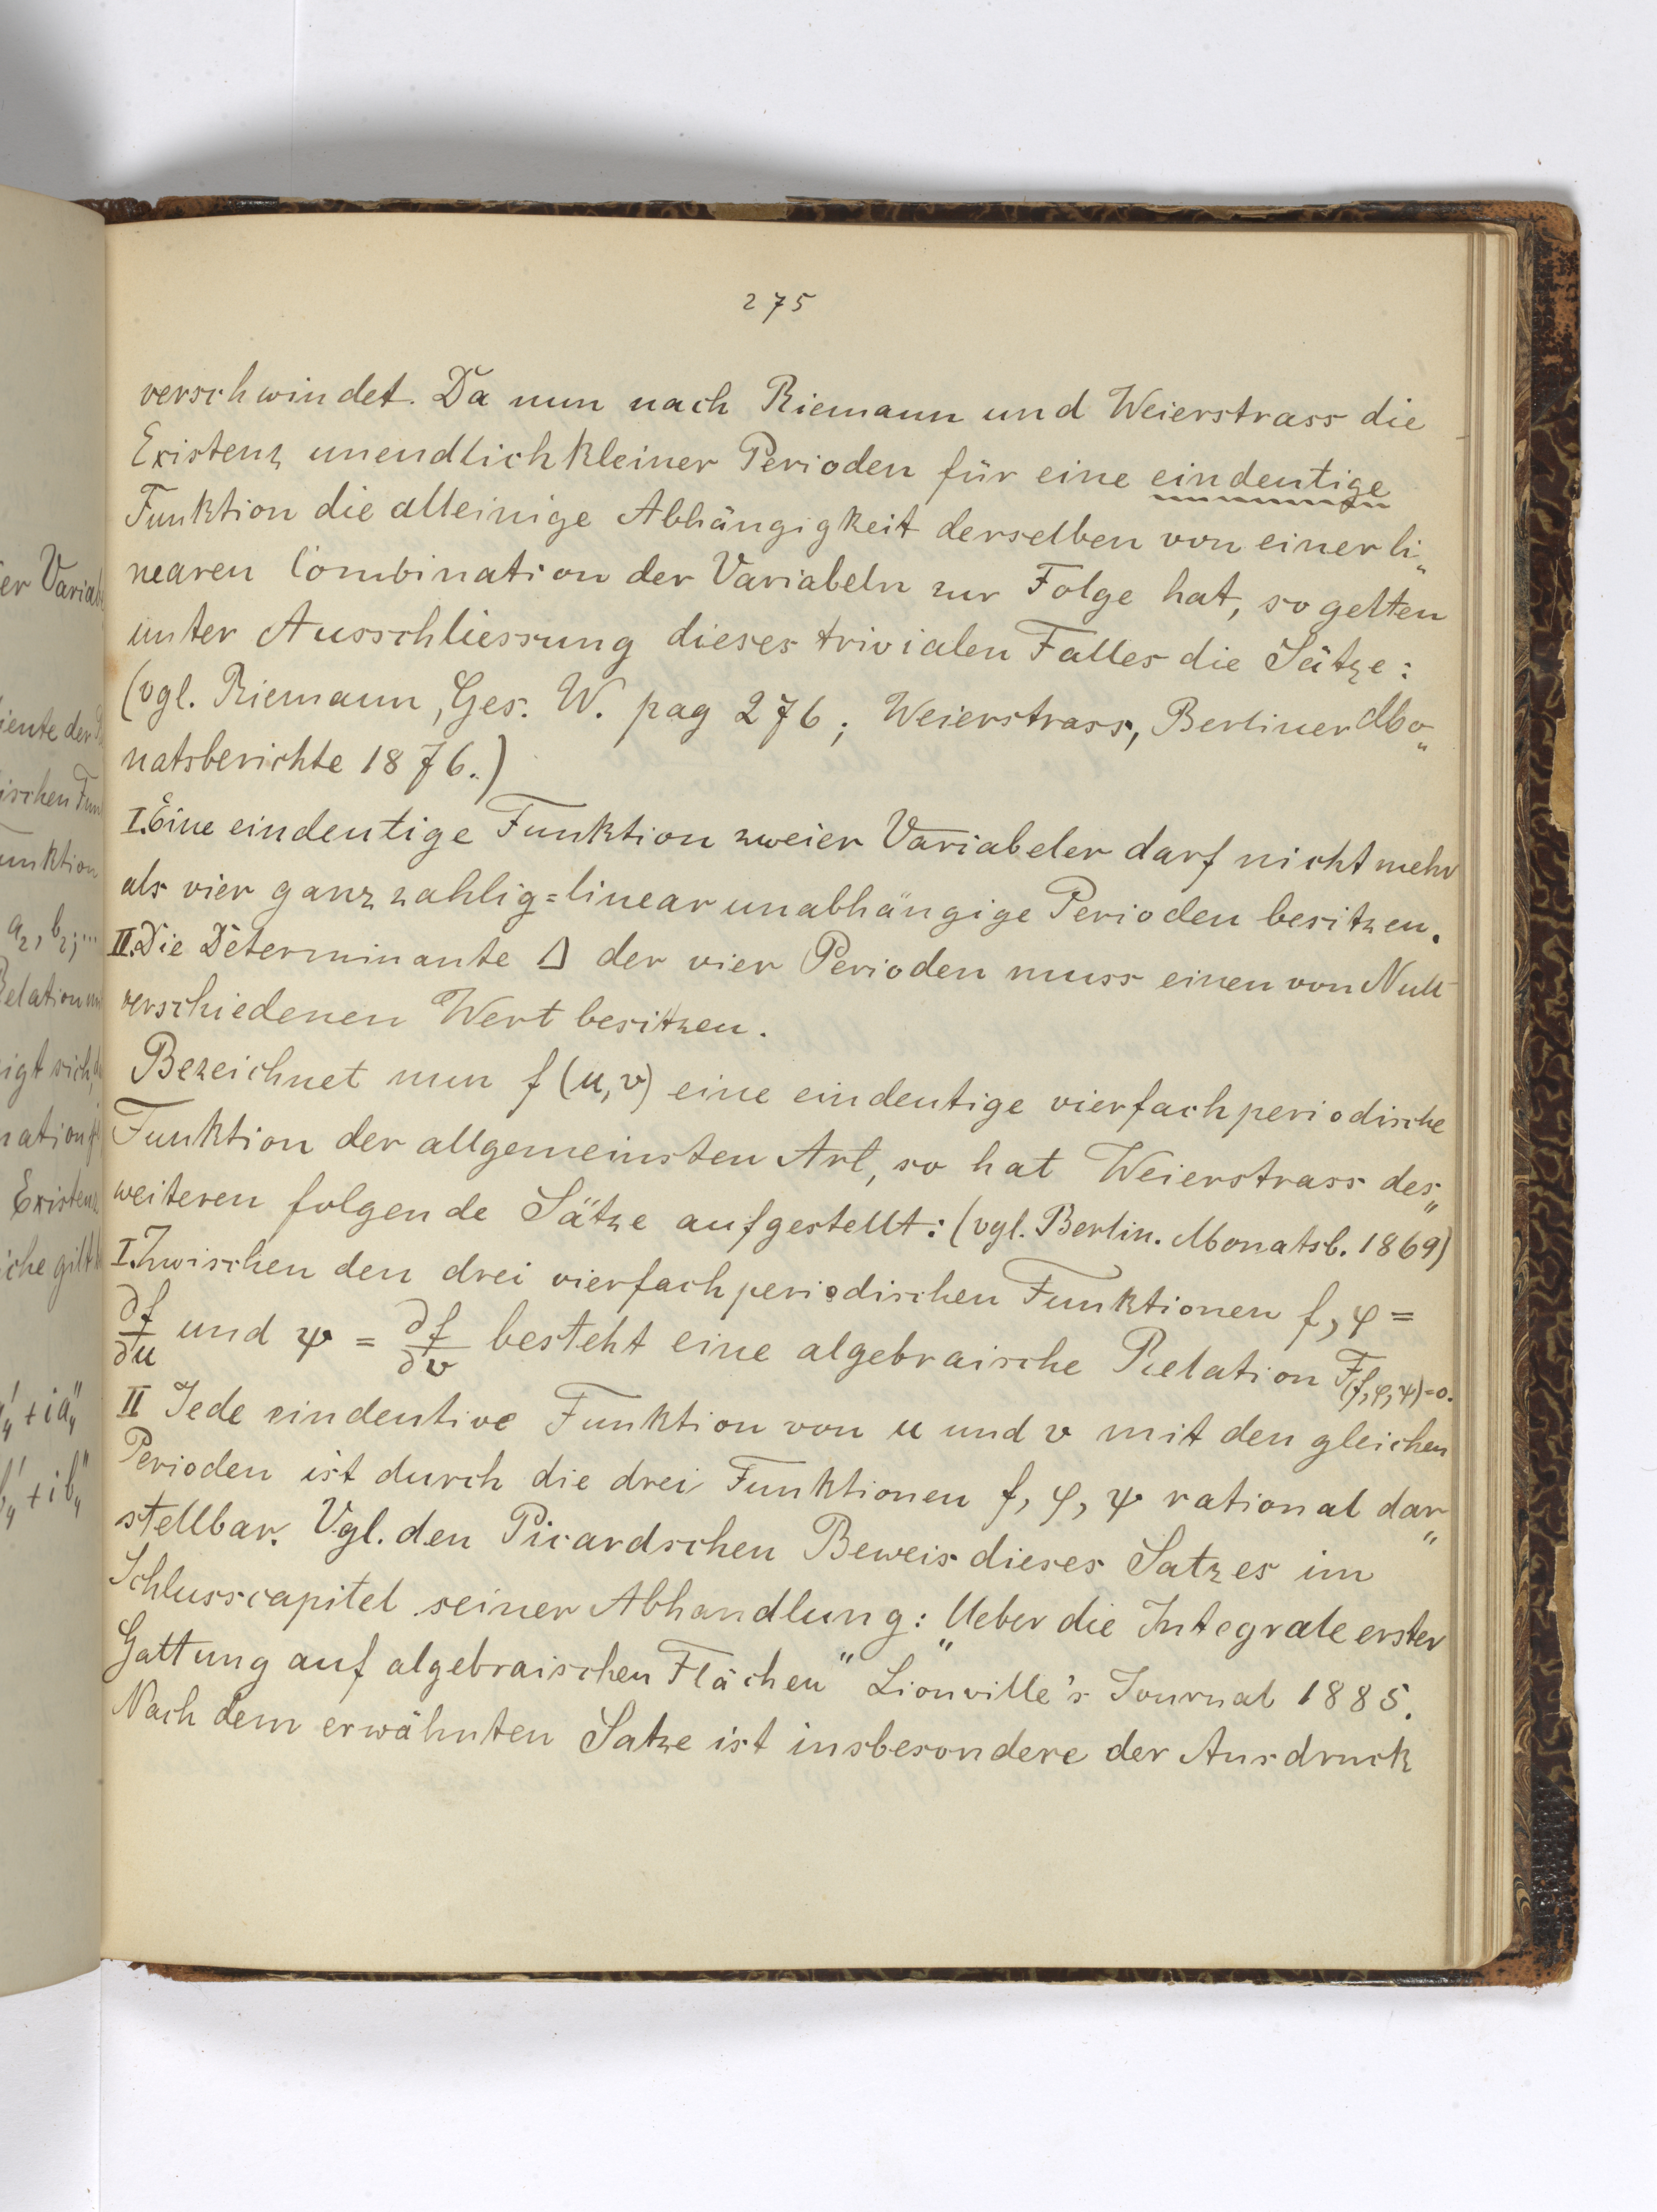 275
verschwindet. Da nun nach Riemann und Weierstrass die
Existenz unendlich kleiner Perioden für eine eindeutige
Funktion die alleinige Abhängigkeit derselben von einer li„
nearen Combination der Variabeln zur Folge hat, so gelten
unter Ausschliessung dieses trivialen Falles die Sätze:
(vgl. Riemann, Ges. W. pag 276; Weierstrass, Berliner Mo„
natsberichte 1876.)
I. Eine eindeutige Funktion zweier Variabeler darf nicht mehr
als vier ganzzahlig=linear unabhängige Perioden besitzen.
II. Die Determinante Δ der vier Perioden muss einen von Null
verschiedenen Wert besitzen.
Bezeichnet nun f(u,v) eine eindeutige vierfachperiodische
Funktion der allgemeinsten Art, so hat Weierstrass des„
weiteren folgende Sätze aufgestellt: (vgl. Berlin. Monatsb. 1869)
I. Zwischen den drei vierfach periodischen Funktionen f, φ =
∂f/∂u und ψ = ∂f/∂v besteht eine algebraische Relation F(f,φ,ψ)=0.
II Jede eindeutive Funktion von u und v mit den gleichen
Perioden ist durch die drei Funktionen f, φ, ψ rational dar„
stellbar. Vgl. den Picardschen Beweis dieses Satzes im
Schlusscapitel seiner Abhandlung: „Ueber die Integrale erster
Gattung auf algebraischen Flächen" Liouville's Journal 1885.
Nach dem erwähnten Satze ist insbesondere der Ausdruck
er Variab
iente der
ischen Fun
unktion
a₂, b₂; ...
Relation
igt sich,
nation
Existenz
che gilt
a₄' + i a₄"
b₄' + i b₄"